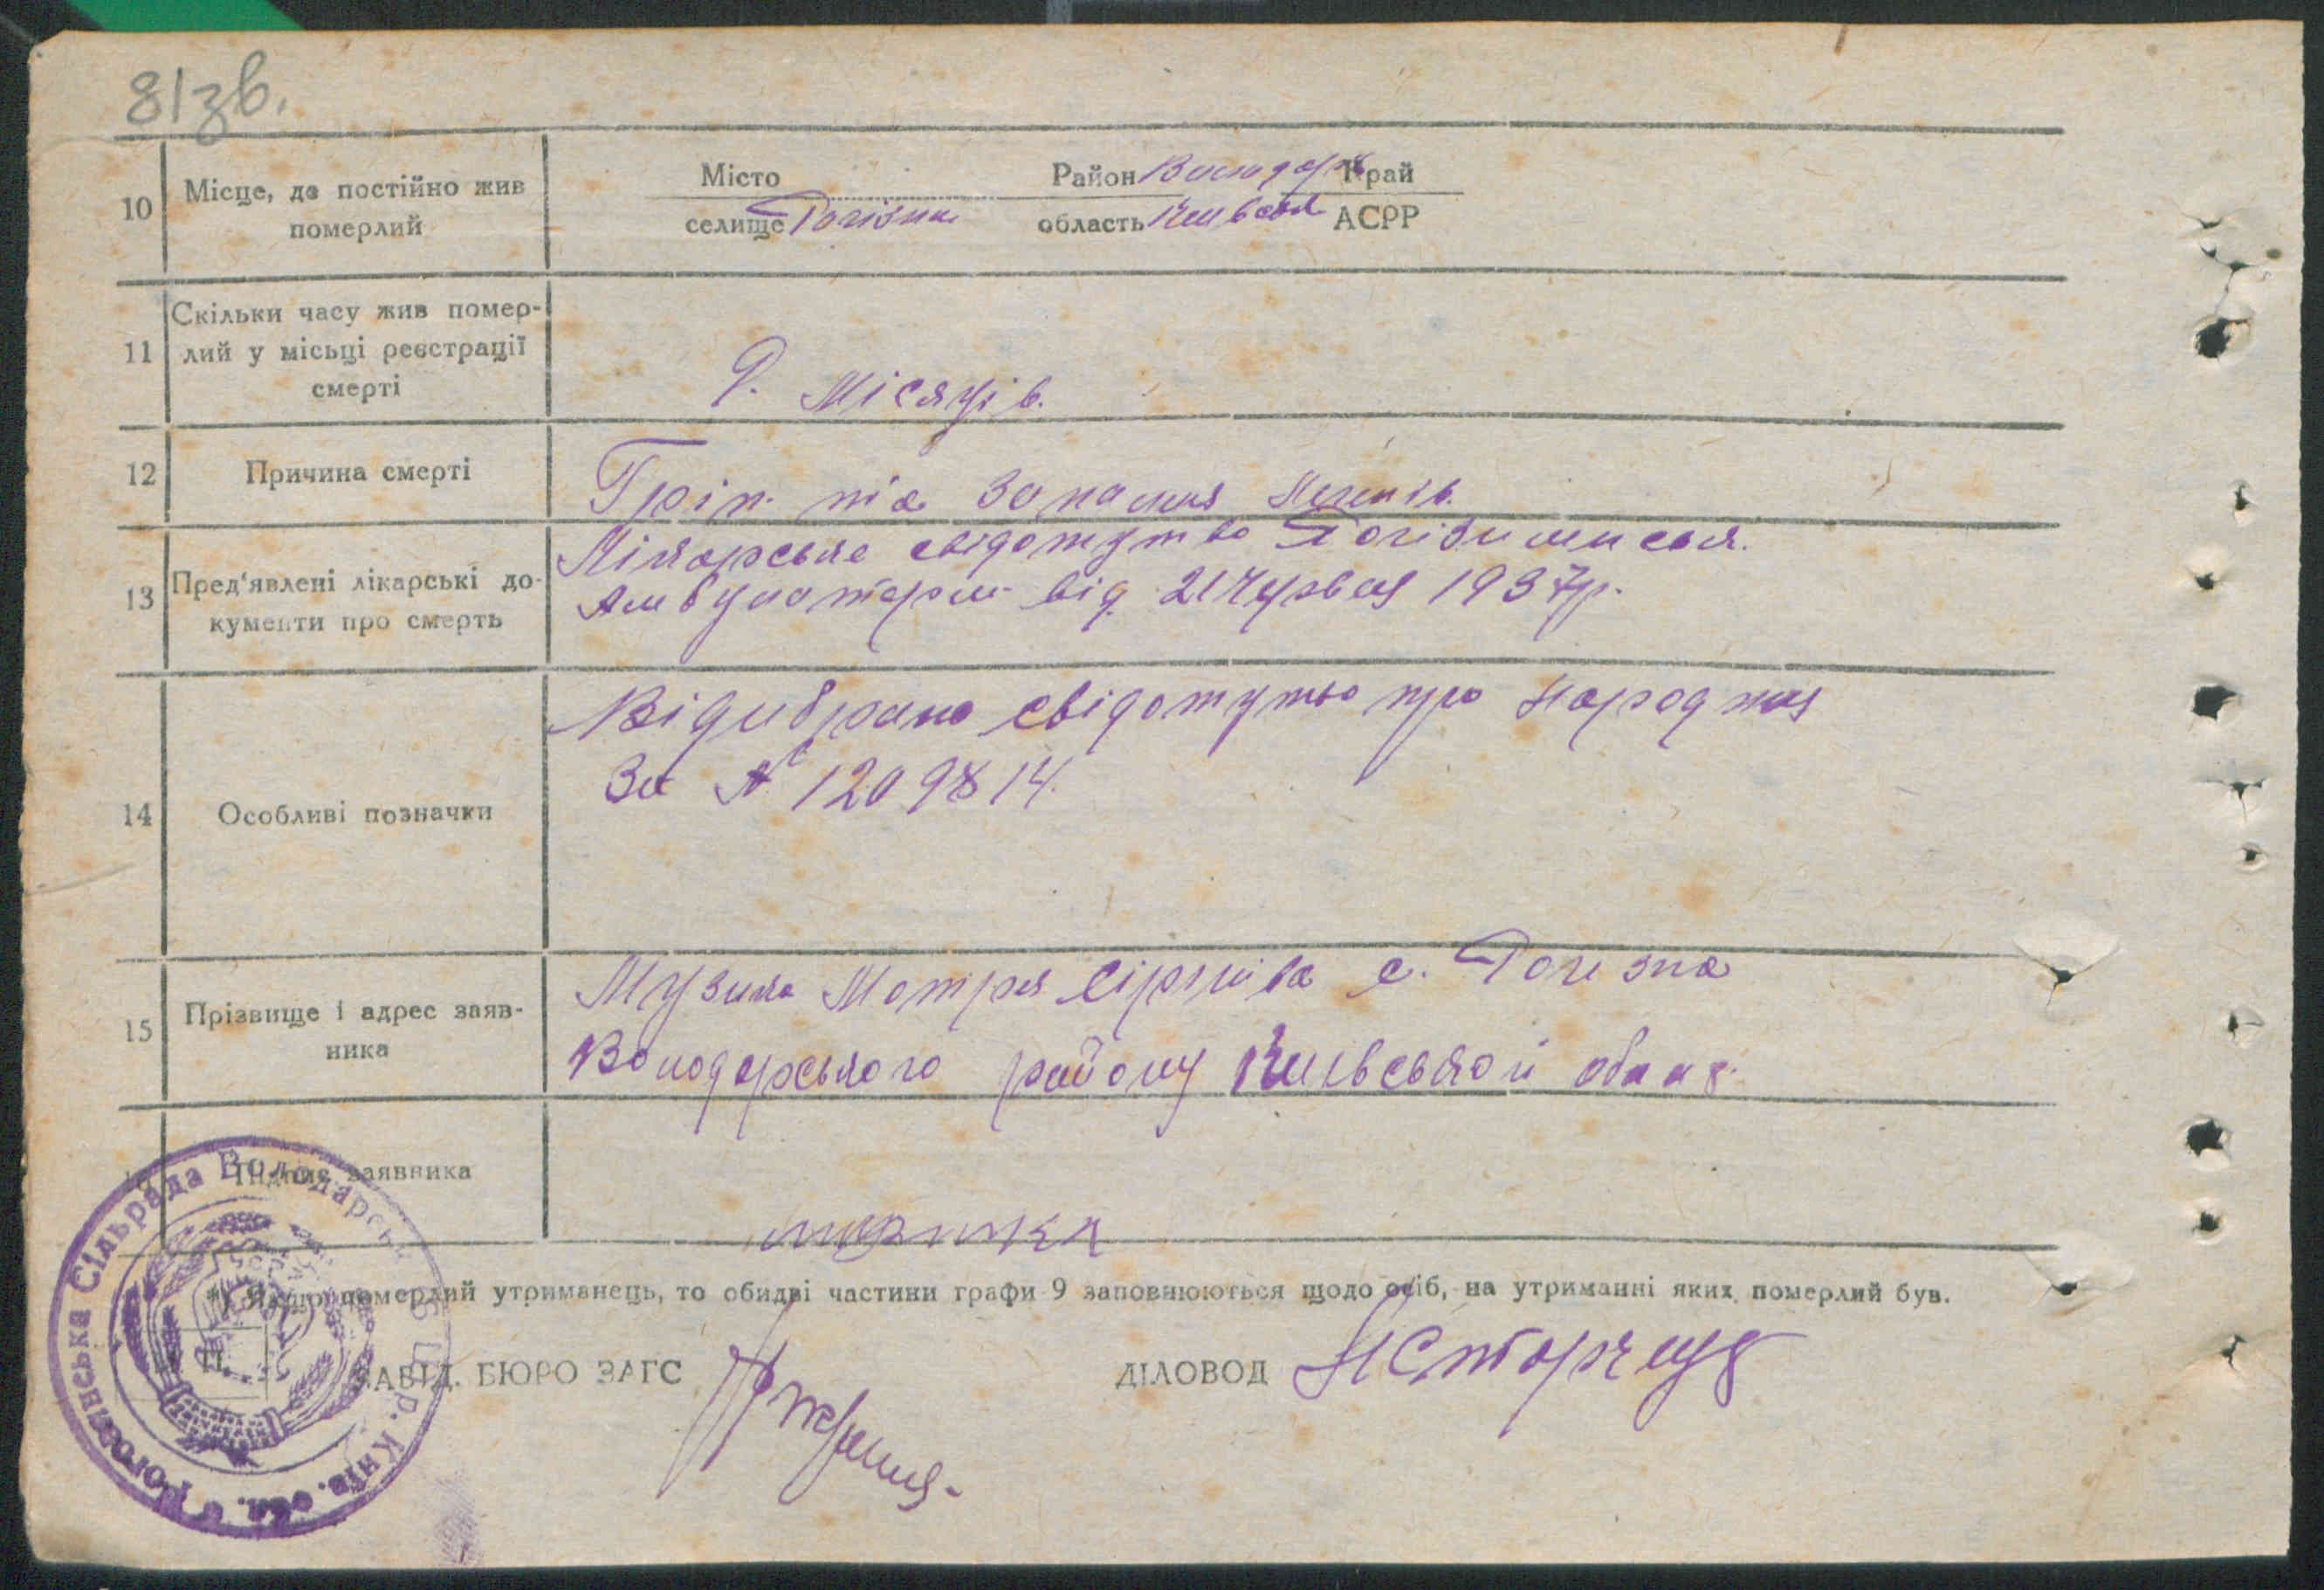 81зв.
10 Місце, де постійно жив померлий
Місто Район Володар Край
селище Рогізна область Київська АСРР
11 Скільки часу жив помер-
лий у місьці реєстрації
смерті
9. Місяців.
12 Причина смерті
Гріп. та запалня легенів.
13 Пред'явлені лікарські до-
кументи про смерть
Лікарське свідотутво Рогізнинская.
Амбулаторія від 21 червня 1937р.
14 Особливі позначки
Відибрано свідотутво про народжня
За № 1209814.
15 Прізвище і адрес заяв-
ника
Музика Мотря Сіргіївна с. Рогізна
Володарського району Київської обла
Підпис заявника
*) Якщо померлий утриманець, то обидві частини графи 9 заповнюються щодо осіб, на утриманні яких померлий був.
М. П.
ЗАВІД. БЮРО ЗАГС
ДІЛОВОД
Сільрада Володарськ Р. Київ. обл.